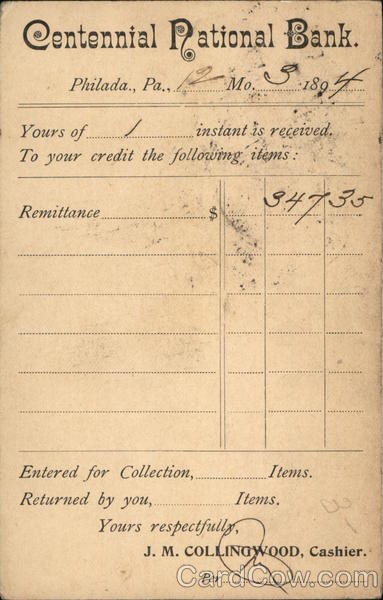 Centennial National Bank.
Philada., Pa., 12 Mo. 3 1894
Yours of 1 instant is received.
To your credit the following items:
Remittance $ 347 35
Entered for Collection, Items.
Returned by you, Items.
Yours respectfully,
J. M. COLLINGWOOD, Cashier.
Per
CardCow.com